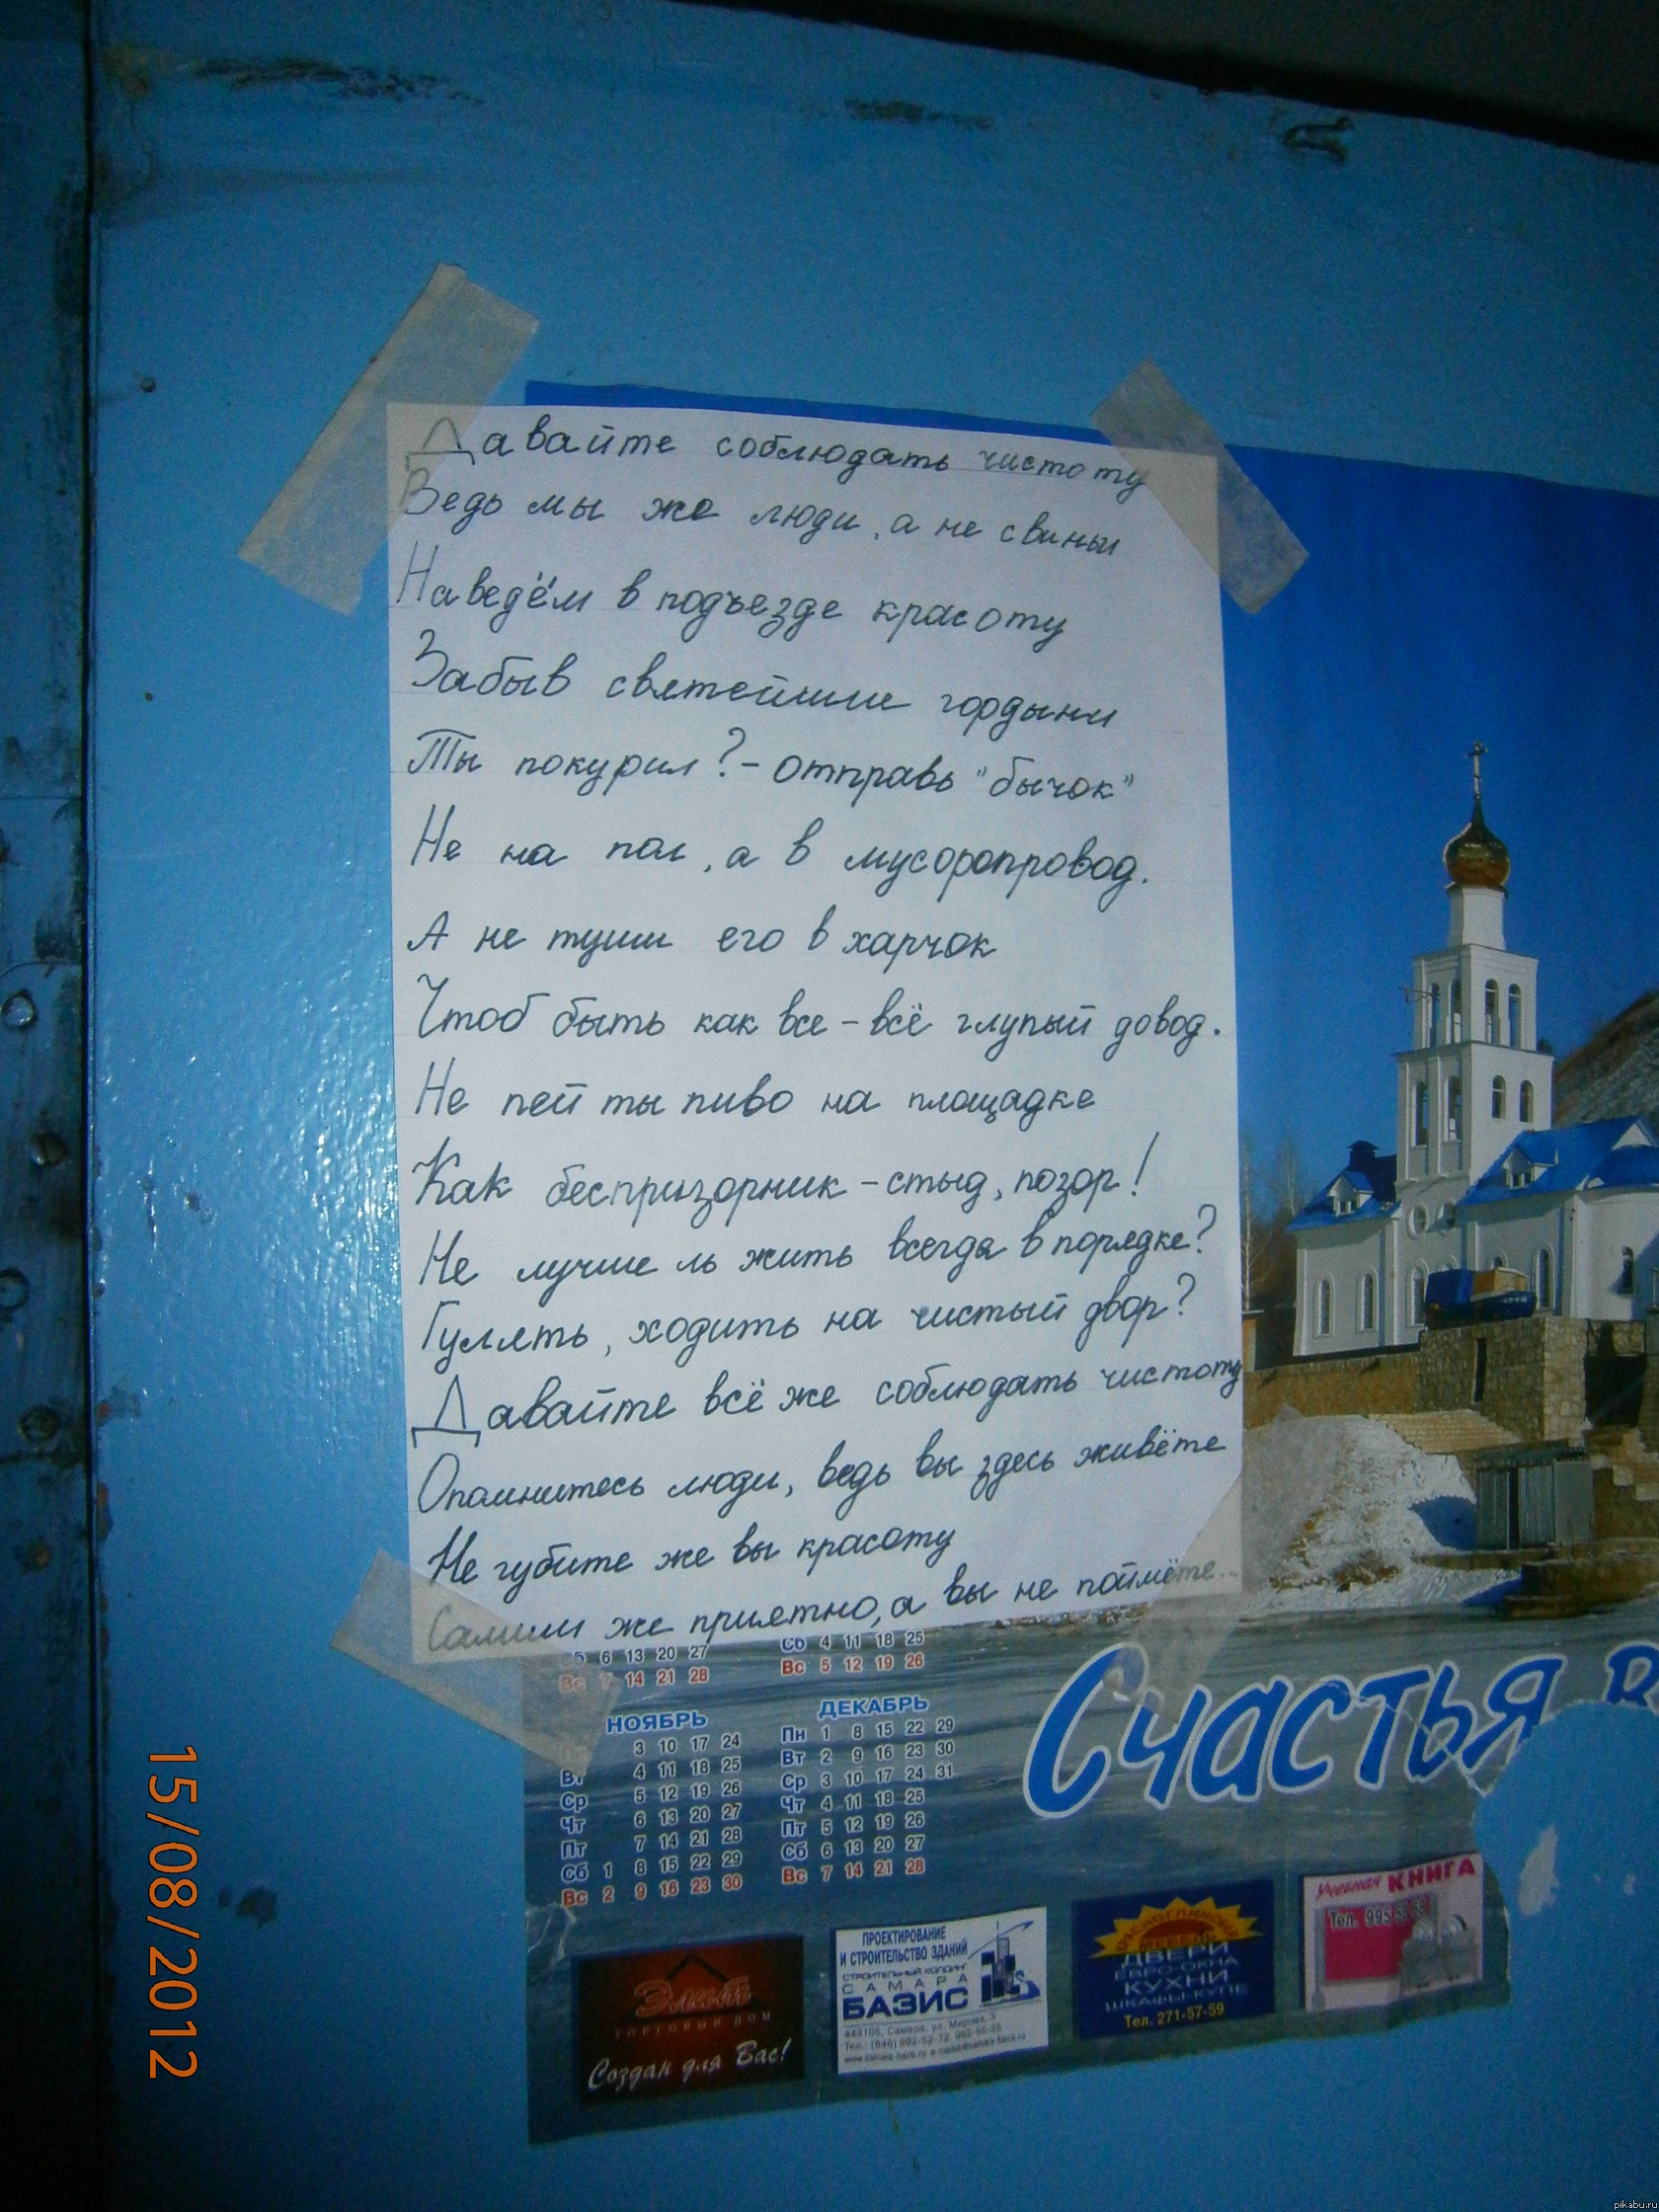 Давайте соблюдать чистоту
Ведь мы же люди, а не свиньи
Наведём в подъезде красоту
Забыв святейшие гордыни
Ты покурил? - отправь "бычок"
Не на пол, а в мусоропровод.
А не туши его в харчок
Чтоб быть как все - всё глупый довод.
Не пей ты пиво на площадке
Как беспризорник - стыд, позор!
Не лучше ль жить всегда в порядке?
Гулять, ходить на чистый двор?
Давайте всё же соблюдать чистоту
Опомнитесь люди, ведь вы здесь живёте
Не губите же вы красоту
Самим же приятно, а вы не поймёте...
Сб 6 13 20 27
Вс 7 14 21 28
Сб 4 11 18 25
Вс 5 12 19 26
НОЯБРЬ
3 10 17 24
Вт 4 11 18 25
Ср 5 12 19 26
Чт 6 13 20 27
Пт 7 14 21 28
Сб 1 8 15 22 29
Вс 2 9 16 23 30
ДЕКАБРЬ
Пн 1 8 15 22 29
Вт 2 9 16 23 30
Ср 3 10 17 24 31
Чт 4 11 18 25
Пт 5 12 19 26
Сб 6 13 20 27
Вс 7 14 21 28
Счастья в
Элит
ТОРГОВЫЙ ДОМ
Создан для Вас!
ПРОЕКТИРОВАНИЕ
И СТРОИТЕЛЬСТВО ЗДАНИЙ
СТРОИТЕЛЬНЫЙ ХОЛДИНГ
САМАРА
БАЗИС
Самара, ул. Мирная, 3
МЕБЕЛЬ
ДВЕРИ
ЕВРО-ОКНА
КУХНИ
ШКАФЫ-КУПЕ
Тел. 271-57-59
Учебная КНИГА
Тел. 995
15/08/2012
pikabu.ru